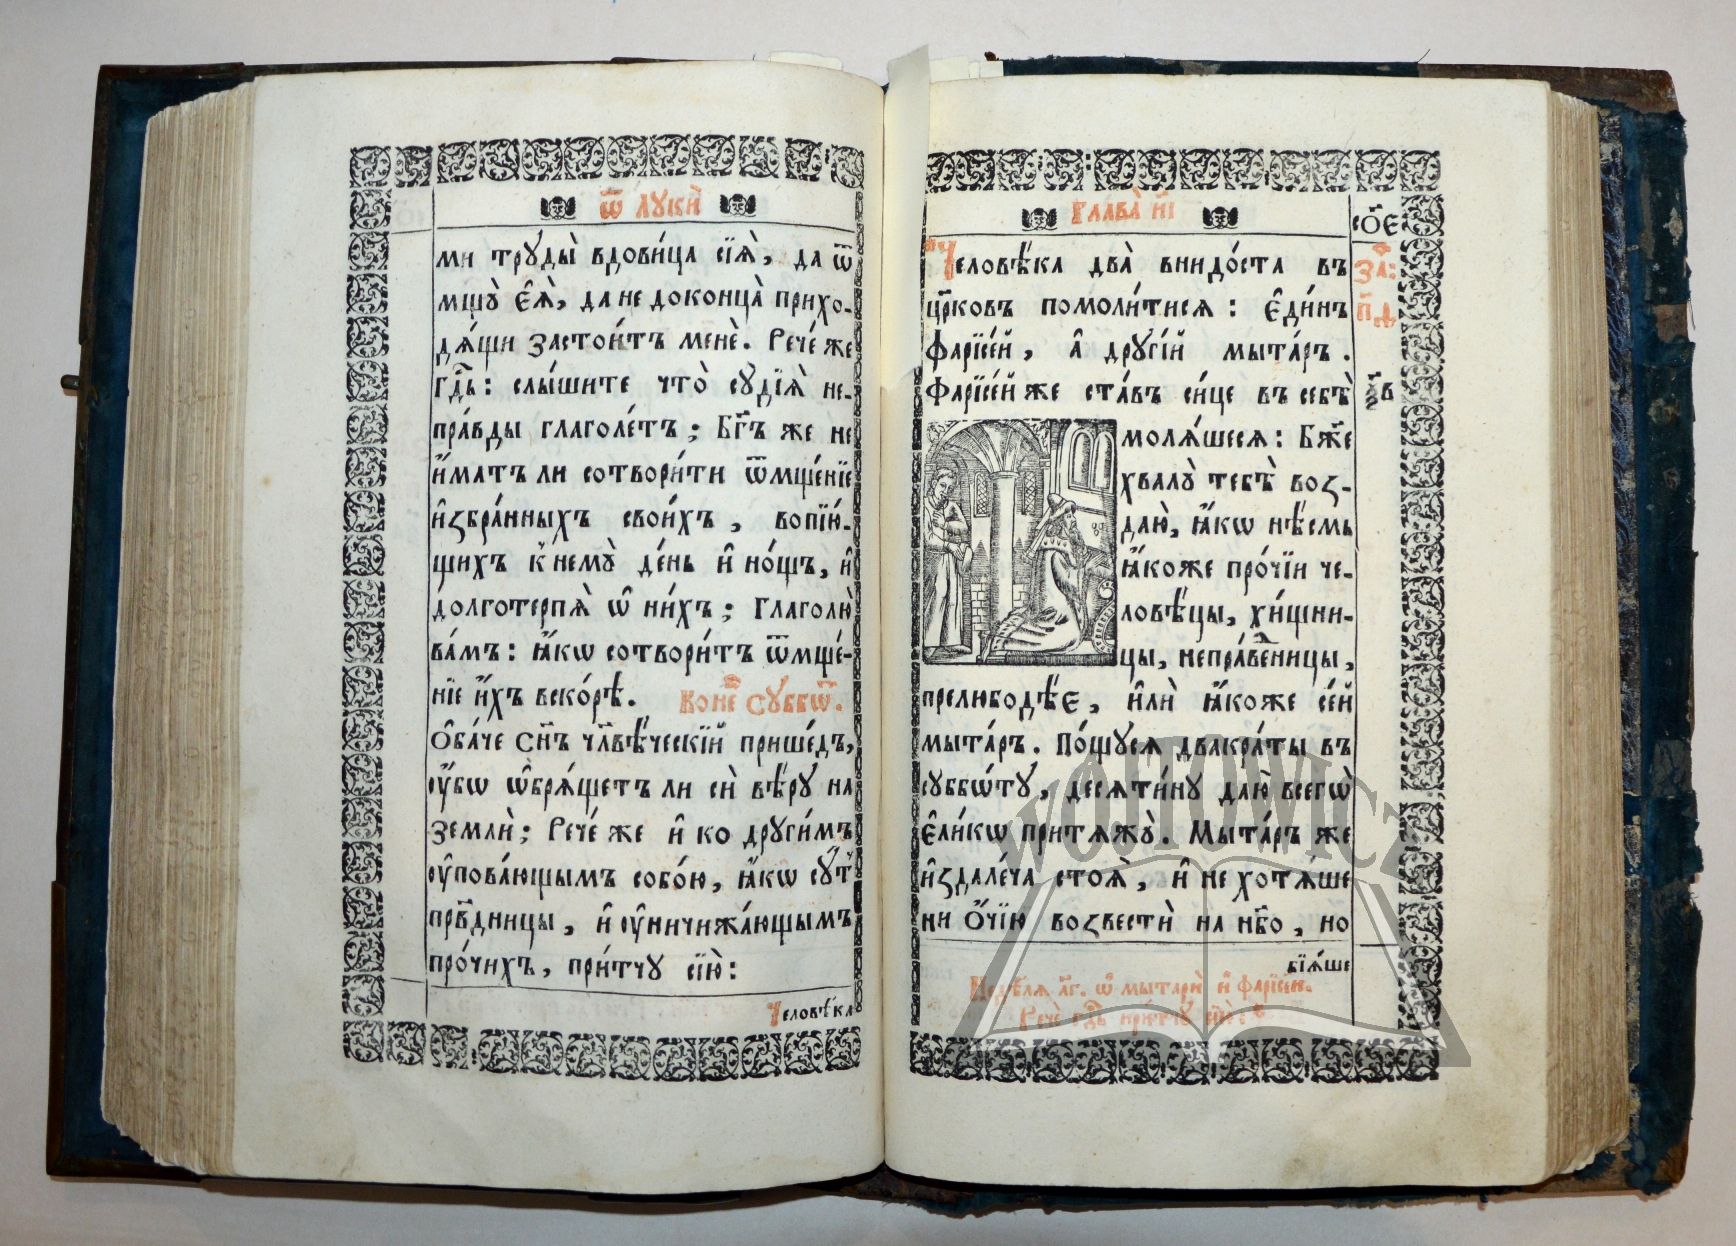 Ѿ ЛУКЍ
ми трꙋды̀ вдови́ца сїѧ̀, да ѿ
мщꙋ̀ є҆ѧ̀, да не доконца̀ прихо-
дѧ́щи застои́тъ менѐ. Рече́ же
гд҇ь: слы́шите что̀ сꙋдїѧ̀ не-
пра́вды глаголе́тъ; Бг҃ъ же не
и҆́матъ ли сотвори́ти ѿмще́нїе
и҆збра́нныхъ свои́хъ, вопїю́-
щихъ к̾немꙋ̀ де́нь и҆ но́щъ, и҆
долготерпѧ̀ ѡ҆ ни́хъ; Глаголю̀
ва́мъ: ꙗ҆́кѡ сотвори́тъ ѿмще́-
нїе и҆́хъ вско́рѣ. Коне҇ сꙋббѡ҇т.
Ѻ҆ба́че сн҃ъ чл҃вѣ́ческїй прише́дъ,
ᲂу҆́бѡ ѡ҆брѧ́щетъ ли сѝ вѣ́рꙋ на
землѝ; Рече́ же и҆ ко дрꙋги́мъ
ᲂу҆пова́ющымъ собо́ю, ꙗ҆́кѡ сꙋ́т̾
пра҇вдницы, и҆ ᲂу҆ничижа́ющымъ
про́чихъ, при́тчꙋ сїю̀:
Человѣ́ка
ГЛАВА̀ И҃І
сѻ҃є
Человѣ́ка два̀ внидо́ста въ
За҇:
цр҃ковъ помоли́тисѧ: є҆ди́нъ
п҃ѳ
фарїсе́й, а҆ дрꙋгі́й мыта́ръ.
Фарїсе́й же ста́въ си́це въ себѣ̀
молѧ́шесѧ: Бж҃е
хвалꙋ̀ тебѣ̀ воз-
даю̀, ꙗ҆́кѡ нѣ́смь
ꙗ҆́коже про́чїи че-
ловѣ́цы, хи́щни-
цы, непра́ведницы,
прелюбодѣ́є, и҆лѝ ꙗ҆́коже се́й
мыта́ръ. Пощꙋсѧ двакра́ты въ
сꙋббѡ́тꙋ, десѧти́нꙋ даю̀ всегѡ̀
є҆ли́кѡ притѧжꙋ̀. Мыта́ръ же
и҆здале́ча стоѧ̀, и҆ не хотѧ́ше
ни ѻ҆́чїю возвестѝ на нб҃о, но
бїѧ́ше
Недѣ́лѧ л҃г. ѡ҆ мытарѝ и҆ фарїсе́и.
Речѐ гд҇ь при́тчꙋ сїю̀:
WÓJTOWICZ